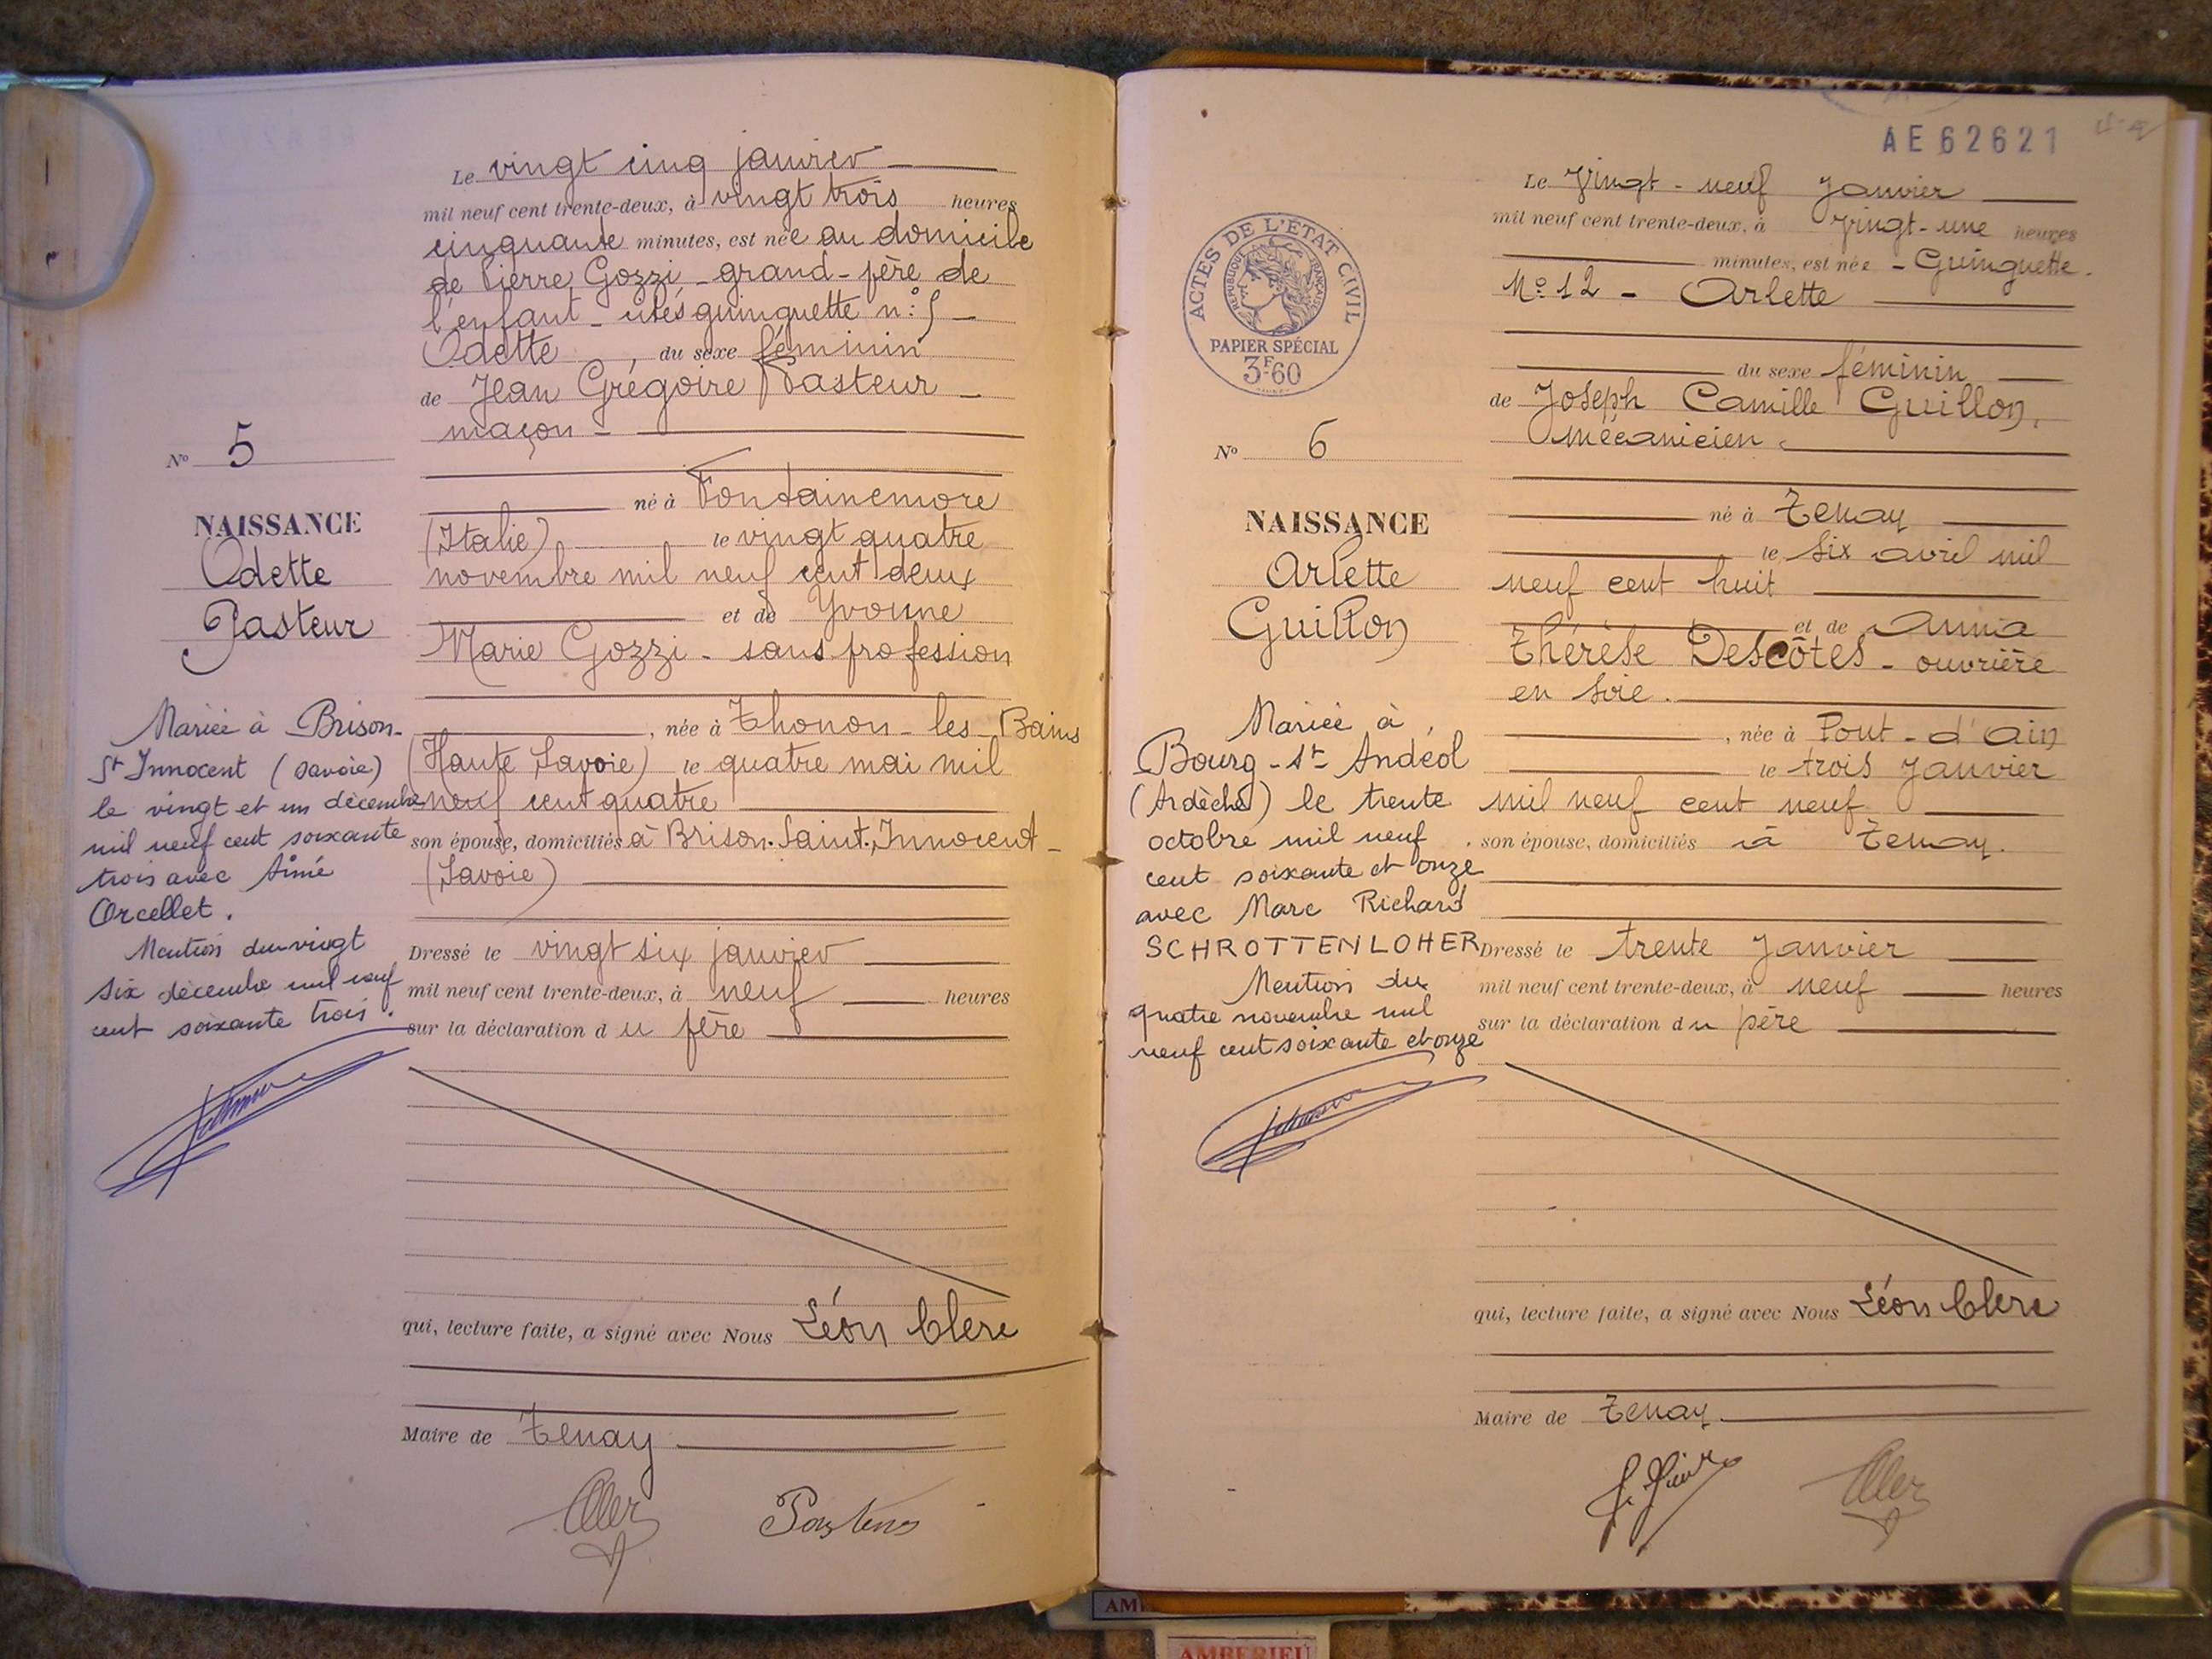 Le vingt cinq janvier
mil neuf cent trente-deux, à vingt trois heures
cinquante minutes, est née au domicile
de Pierre Gozzi - grand-père de
l'enfant - cités guinguette n° 5 -
Odette, du sexe féminin
de Jean Grégoire Pasteur -
maçon -
né à Fontainemore
(Italie) le vingt quatre
novembre mil neuf cent deux
et de Yvonne
Marie Gozzi - sans profession
, née à Thonon-les-Bains
(Haute Savoie) le quatre mai mil
neuf cent quatre
son épouse, domiciliés à Brison-Saint-Innocent -
(Savoie)
Dressé le vingt six janvier
mil neuf cent trente-deux, à neuf heures
sur la déclaration du père
qui, lecture faite, a signé avec Nous Léon Clerc
Maire de Tenay
Pasteur
N° 5
NAISSANCE
Odette
Pasteur
Mariée à Brison-
St Innocent (Savoie)
le vingt et un décembre
mil neuf cent soixante
trois avec Aimé
Orcellet.
Mention du vingt
six décembre mil neuf
cent soixante trois.
AE62621
Le Vingt-neuf Janvier
mil neuf cent trente-deux, à vingt-une heures
minutes, est née - Guinguette.
N° 12 - Arlette
du sexe féminin
de Joseph Camille Guillon,
mécanicien.
né à Tenay
le six avril mil
neuf cent huit
et de Anna
Thérèse Descôtes - ouvrière
en soie.
, née à Pont-d'Ain
le trois Janvier
mil neuf cent neuf
son épouse, domiciliés à Tenay.
Dressé le trente Janvier
mil neuf cent trente-deux, à neuf heures
sur la déclaration du père
qui, lecture faite, a signé avec Nous Léon Clerc
Maire de Tenay.
ACTES DE L'ÉTAT CIVIL
RÉPUBLIQUE FRANÇAISE
PAPIER SPÉCIAL
3F60
N° 6
NAISSANCE
Arlette
Guillon
Mariée à
Bourg-St Andéol
(Ardèche) le trente
octobre mil neuf
cent soixante et onze
avec Marc Richard
SCHROTTENLOHER
Mention du
quatre novembre mil
neuf cent soixante et onze
AMBERIEU